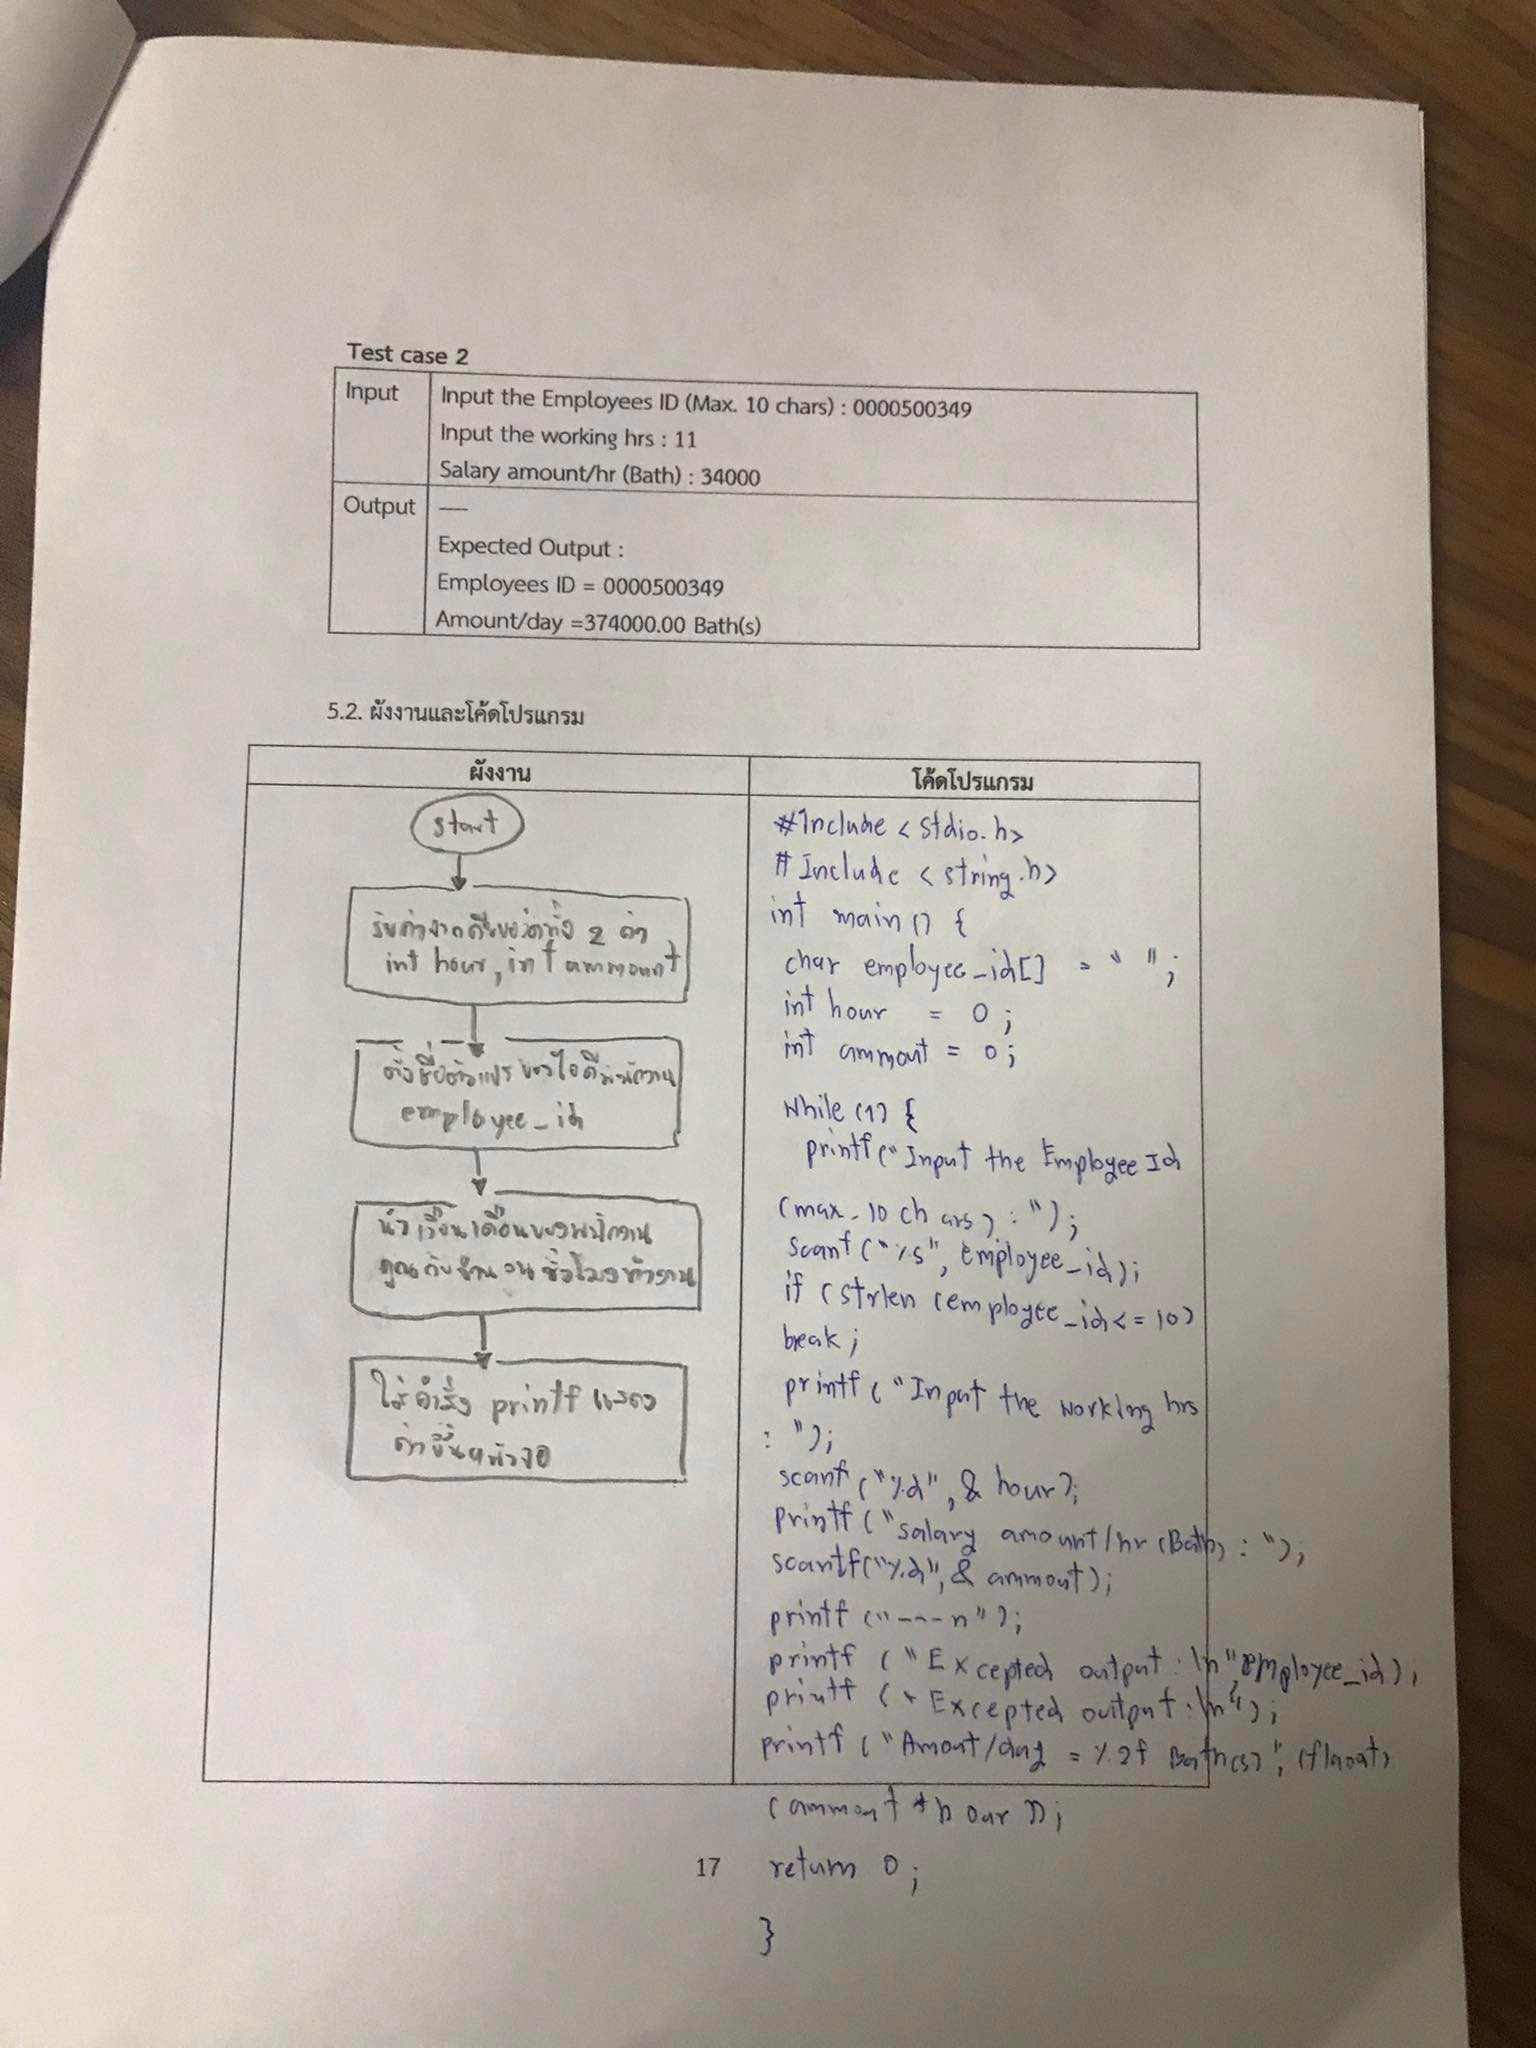 Test case 2
Input
Input the Employees ID (Max. 10 chars) : 0000500349
Input the working hrs : 11
Salary amount/hr (Bath) : 34000
Output
—
Expected Output :
Employees ID = 0000500349
Amount/day =374000.00 Bath(s)
5.2. ผังงานและโค้ดโปรแกรม
ผังงาน
start
รับค่าจากคีย์บอร์ดทั้ง 2 ค่า
int hour, int ammount
ตั้งชื่อตัวแปรของไอดีพนักงาน
employee_id
นำเงินเดือนของพนักงาน
คูณกับจำนวนชั่วโมงทำงาน
ใส่คำสั่ง printf แสดง
ค่าขึ้นหน้าจอ
โค้ดโปรแกรม
#Include < stdio.h>
# Include < string.h>
int main() {
char employee_id[] = " ";
int hour = 0 ;
int ammout = 0 ;
while (1) {
printf("Input the Employee Id
(max. 10 chars) : ");
scanf ("%s", employee_id);
if (strlen (employee_id<=10)
break ;
printf ( "Input the working hrs
: ");
scanf ("%d", & hour);
printf ("salary amount/hr (Bath) : ");
scantf("%d", & ammout);
printf ("---n");
printf ( "Excepted output : \n" employee_id);
printf ( "Excepted output : \n");
printf ( "Amout/day = %.2f Bath(s)", (flaoat)
(ammout * hour ));
return 0 ;
}
17